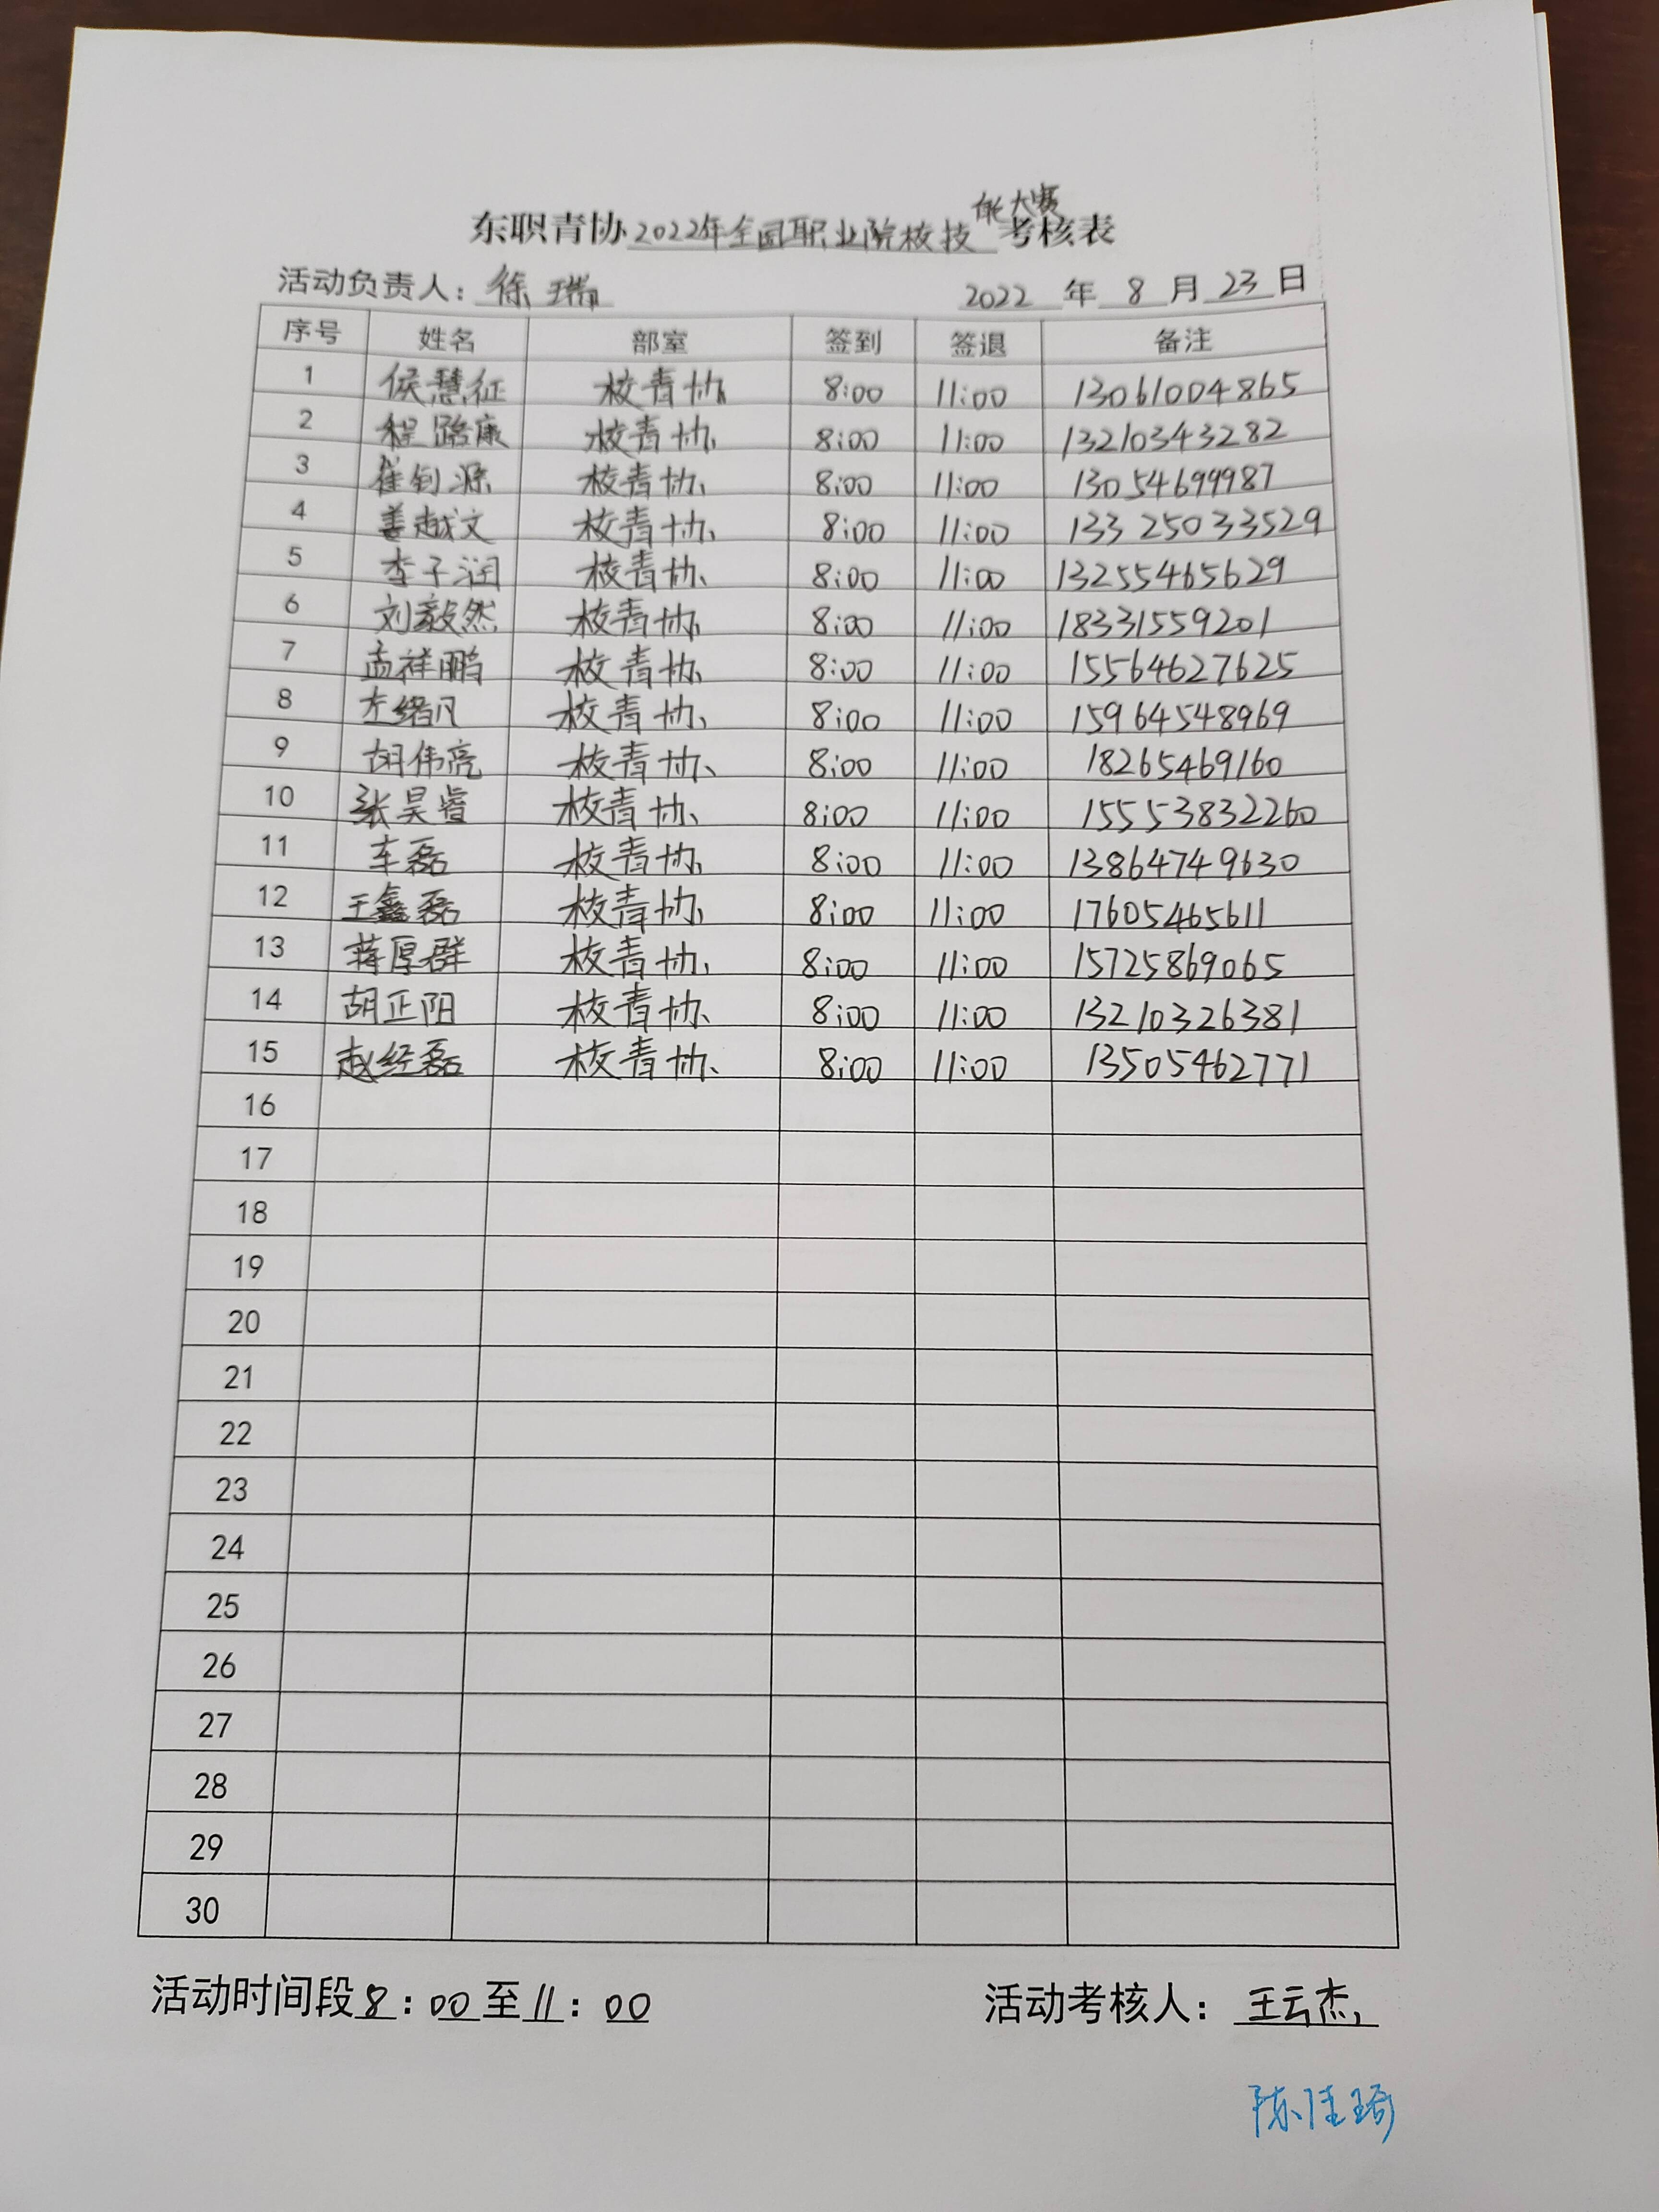 能大赛
东职青协2022年全国职业院校技考核表
活动负责人：徐瑞 2022年8月23日
序号 姓名 部室 签到 签退 备注
1 侯慧征 校青协 8:00 11:00 13061004865
2 程路康 校青协 8:00 11:00 13210343282
3 崔钊源 校青协 8:00 11:00 13054699987
4 姜越文 校青协 8:00 11:00 13325033529
5 李子润 校青协 8:00 11:00 13255465629
6 刘毅然 校青协 8:00 11:00 18331559201
7 孟祥鹏 校青协 8:00 11:00 15564627625
8 左绪凡 校青协 8:00 11:00 15964548969
9 胡伟亮 校青协 8:00 11:00 18265469160
10 张昊睿 校青协 8:00 11:00 15553832260
11 车磊 校青协 8:00 11:00 13864749630
12 王鑫磊 校青协 8:00 11:00 17605465611
13 蒋厚群 校青协 8:00 11:00 15725869065
14 胡正阳 校青协 8:00 11:00 13210326381
15 赵经磊 校青协 8:00 11:00 13505462771
16
17
18
19
20
21
22
23
24
25
26
27
28
29
30
活动时间段8：00至11：00 活动考核人：王云杰
陈佳琦